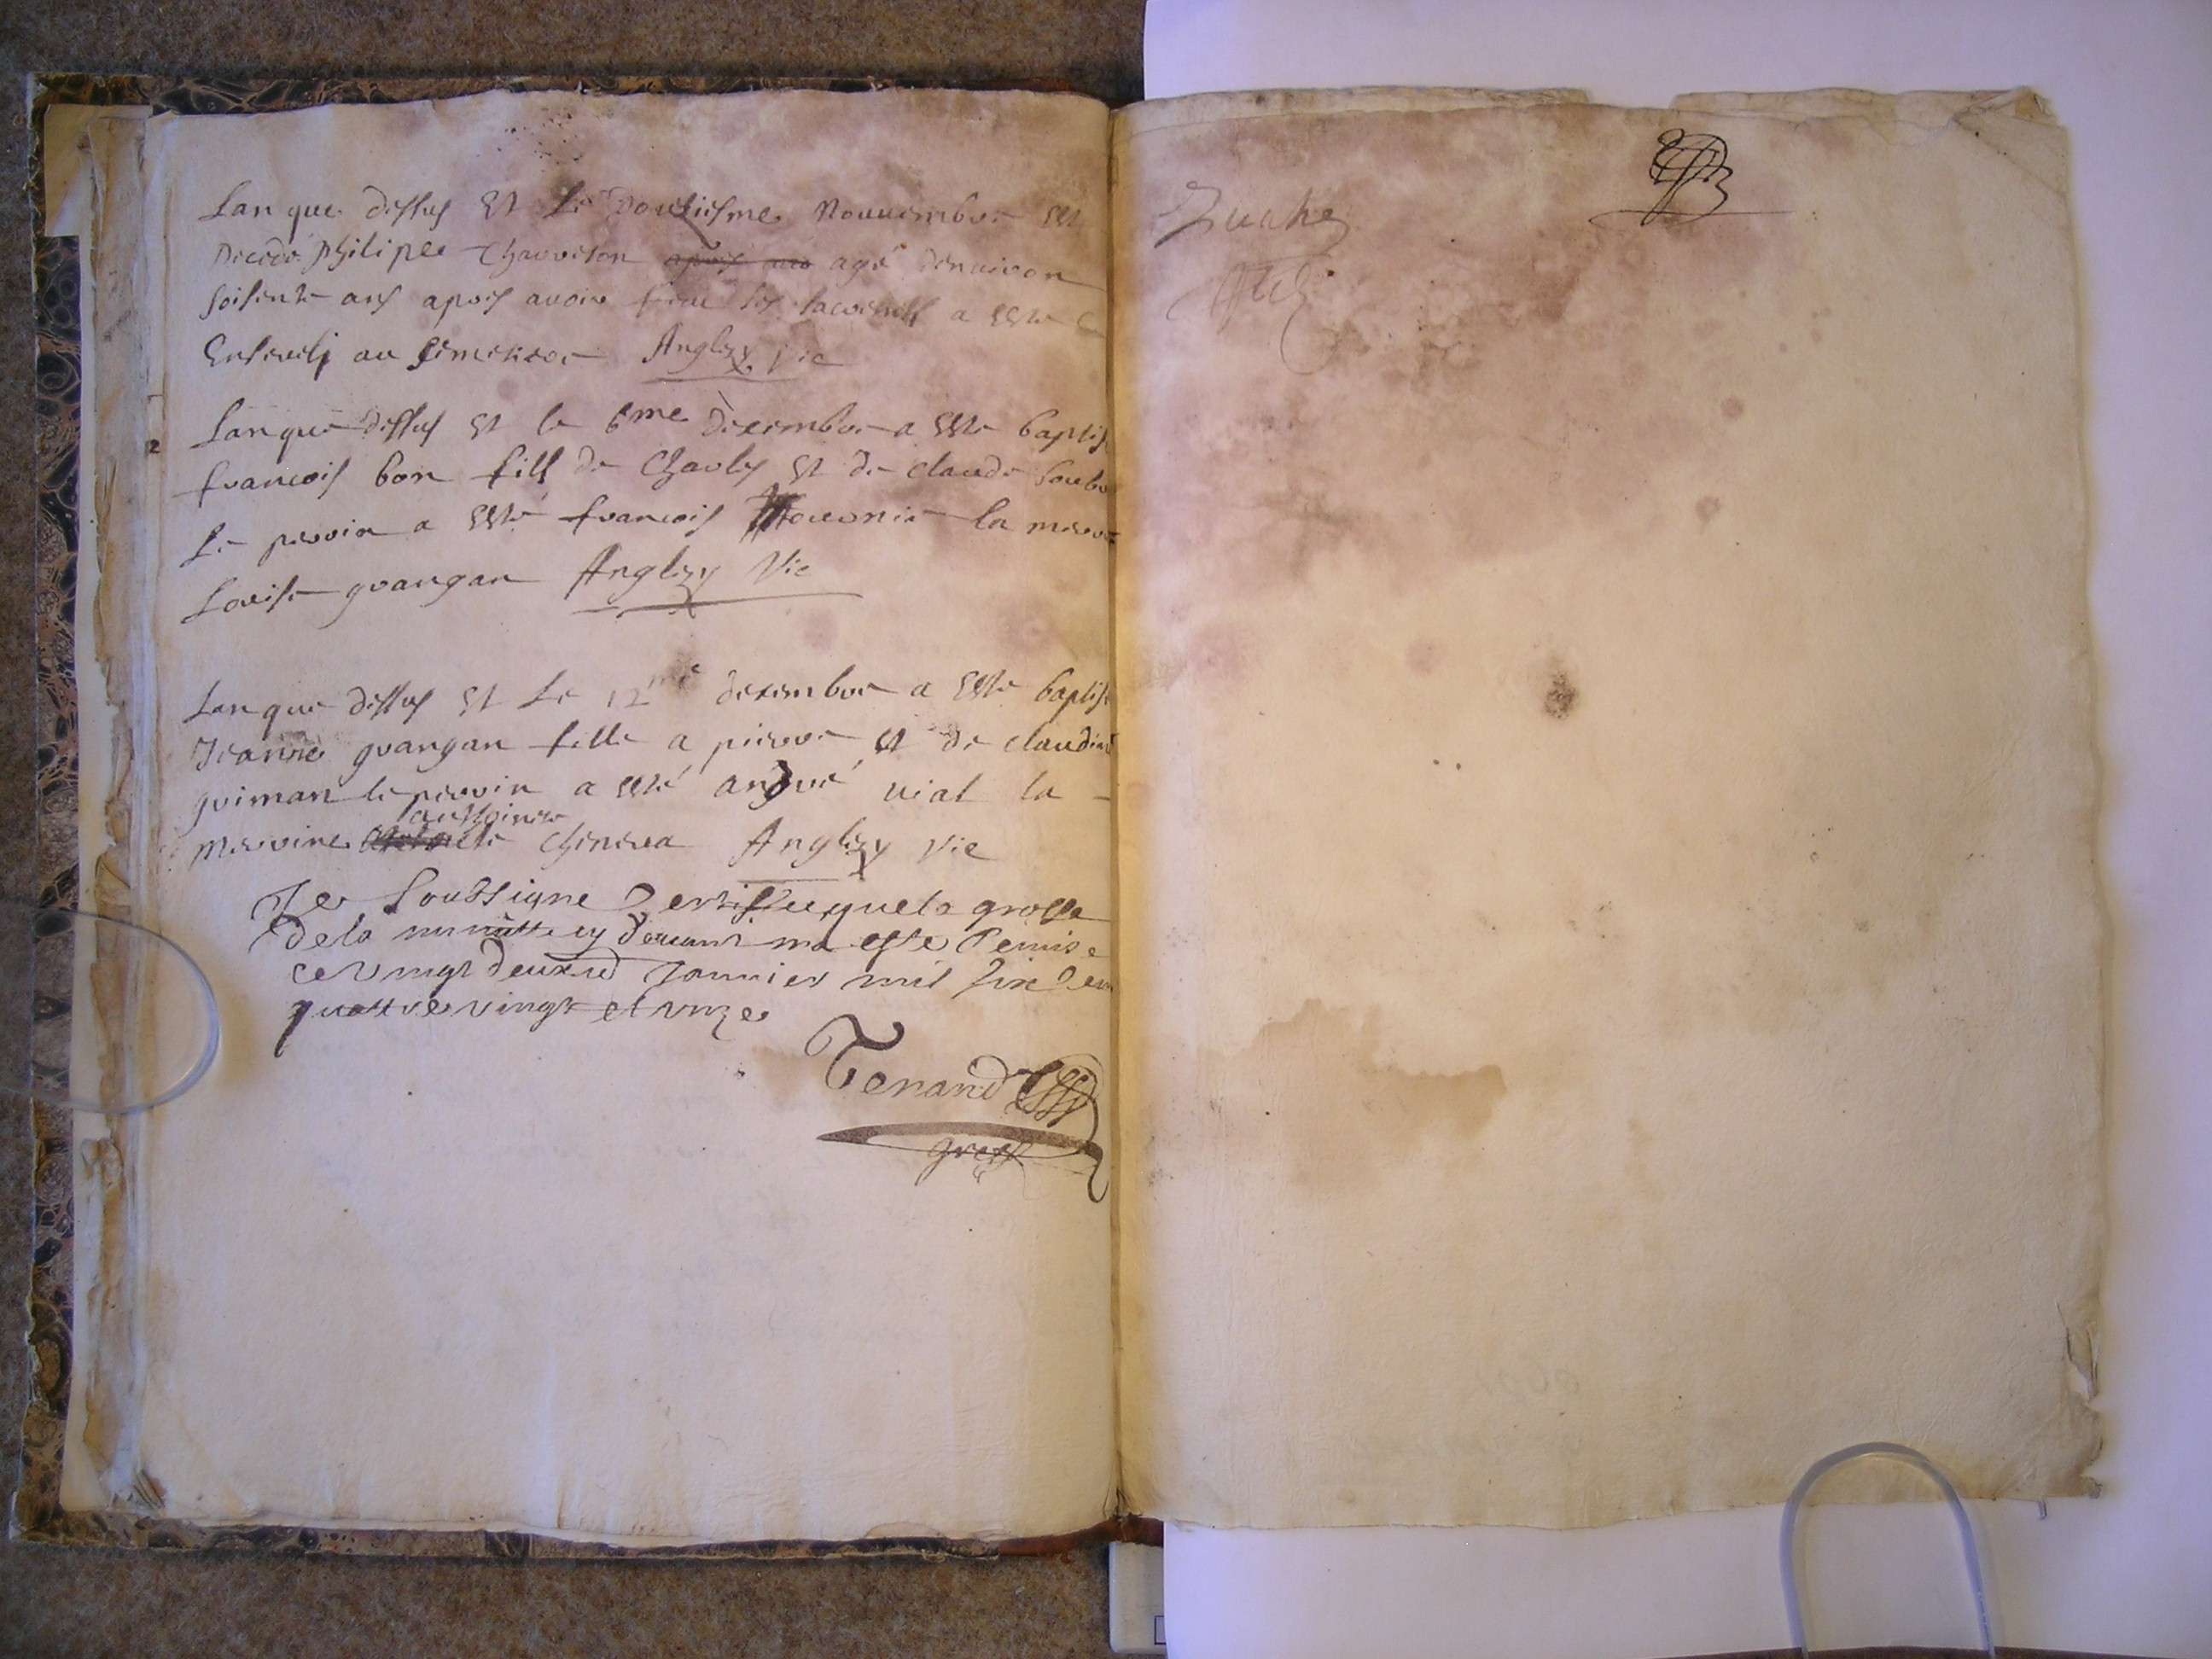 Lan que dessus Et Le douziesme Nouuembre Est
Decede philipee Charreton apres auo agé denuiron
soisente ans apres auoir les sacremts a Este
Enseueli au simetiere Anglezy Vic
Lan que dessus Et le 6me dexembre a Este baptis
francois bon fills de Charles Et de claude
Le perrin a Esté francois la merre
Louise grangan Anglezy Vic
Lan que dessus Et Le 12me dexembre a Este baptise
Jeanne grangan fille a pierre Et de claudine
guiman le perrin a esté andre uial la
antthoinete
merrine Chenera Anglezy Vic
Je soubsigne Certiffie que la grosse
de la minutte cy deuant ma este Remise
ce vingt deuxie Januier mil six Cen
quattre vingt et unze
Tenand
greff